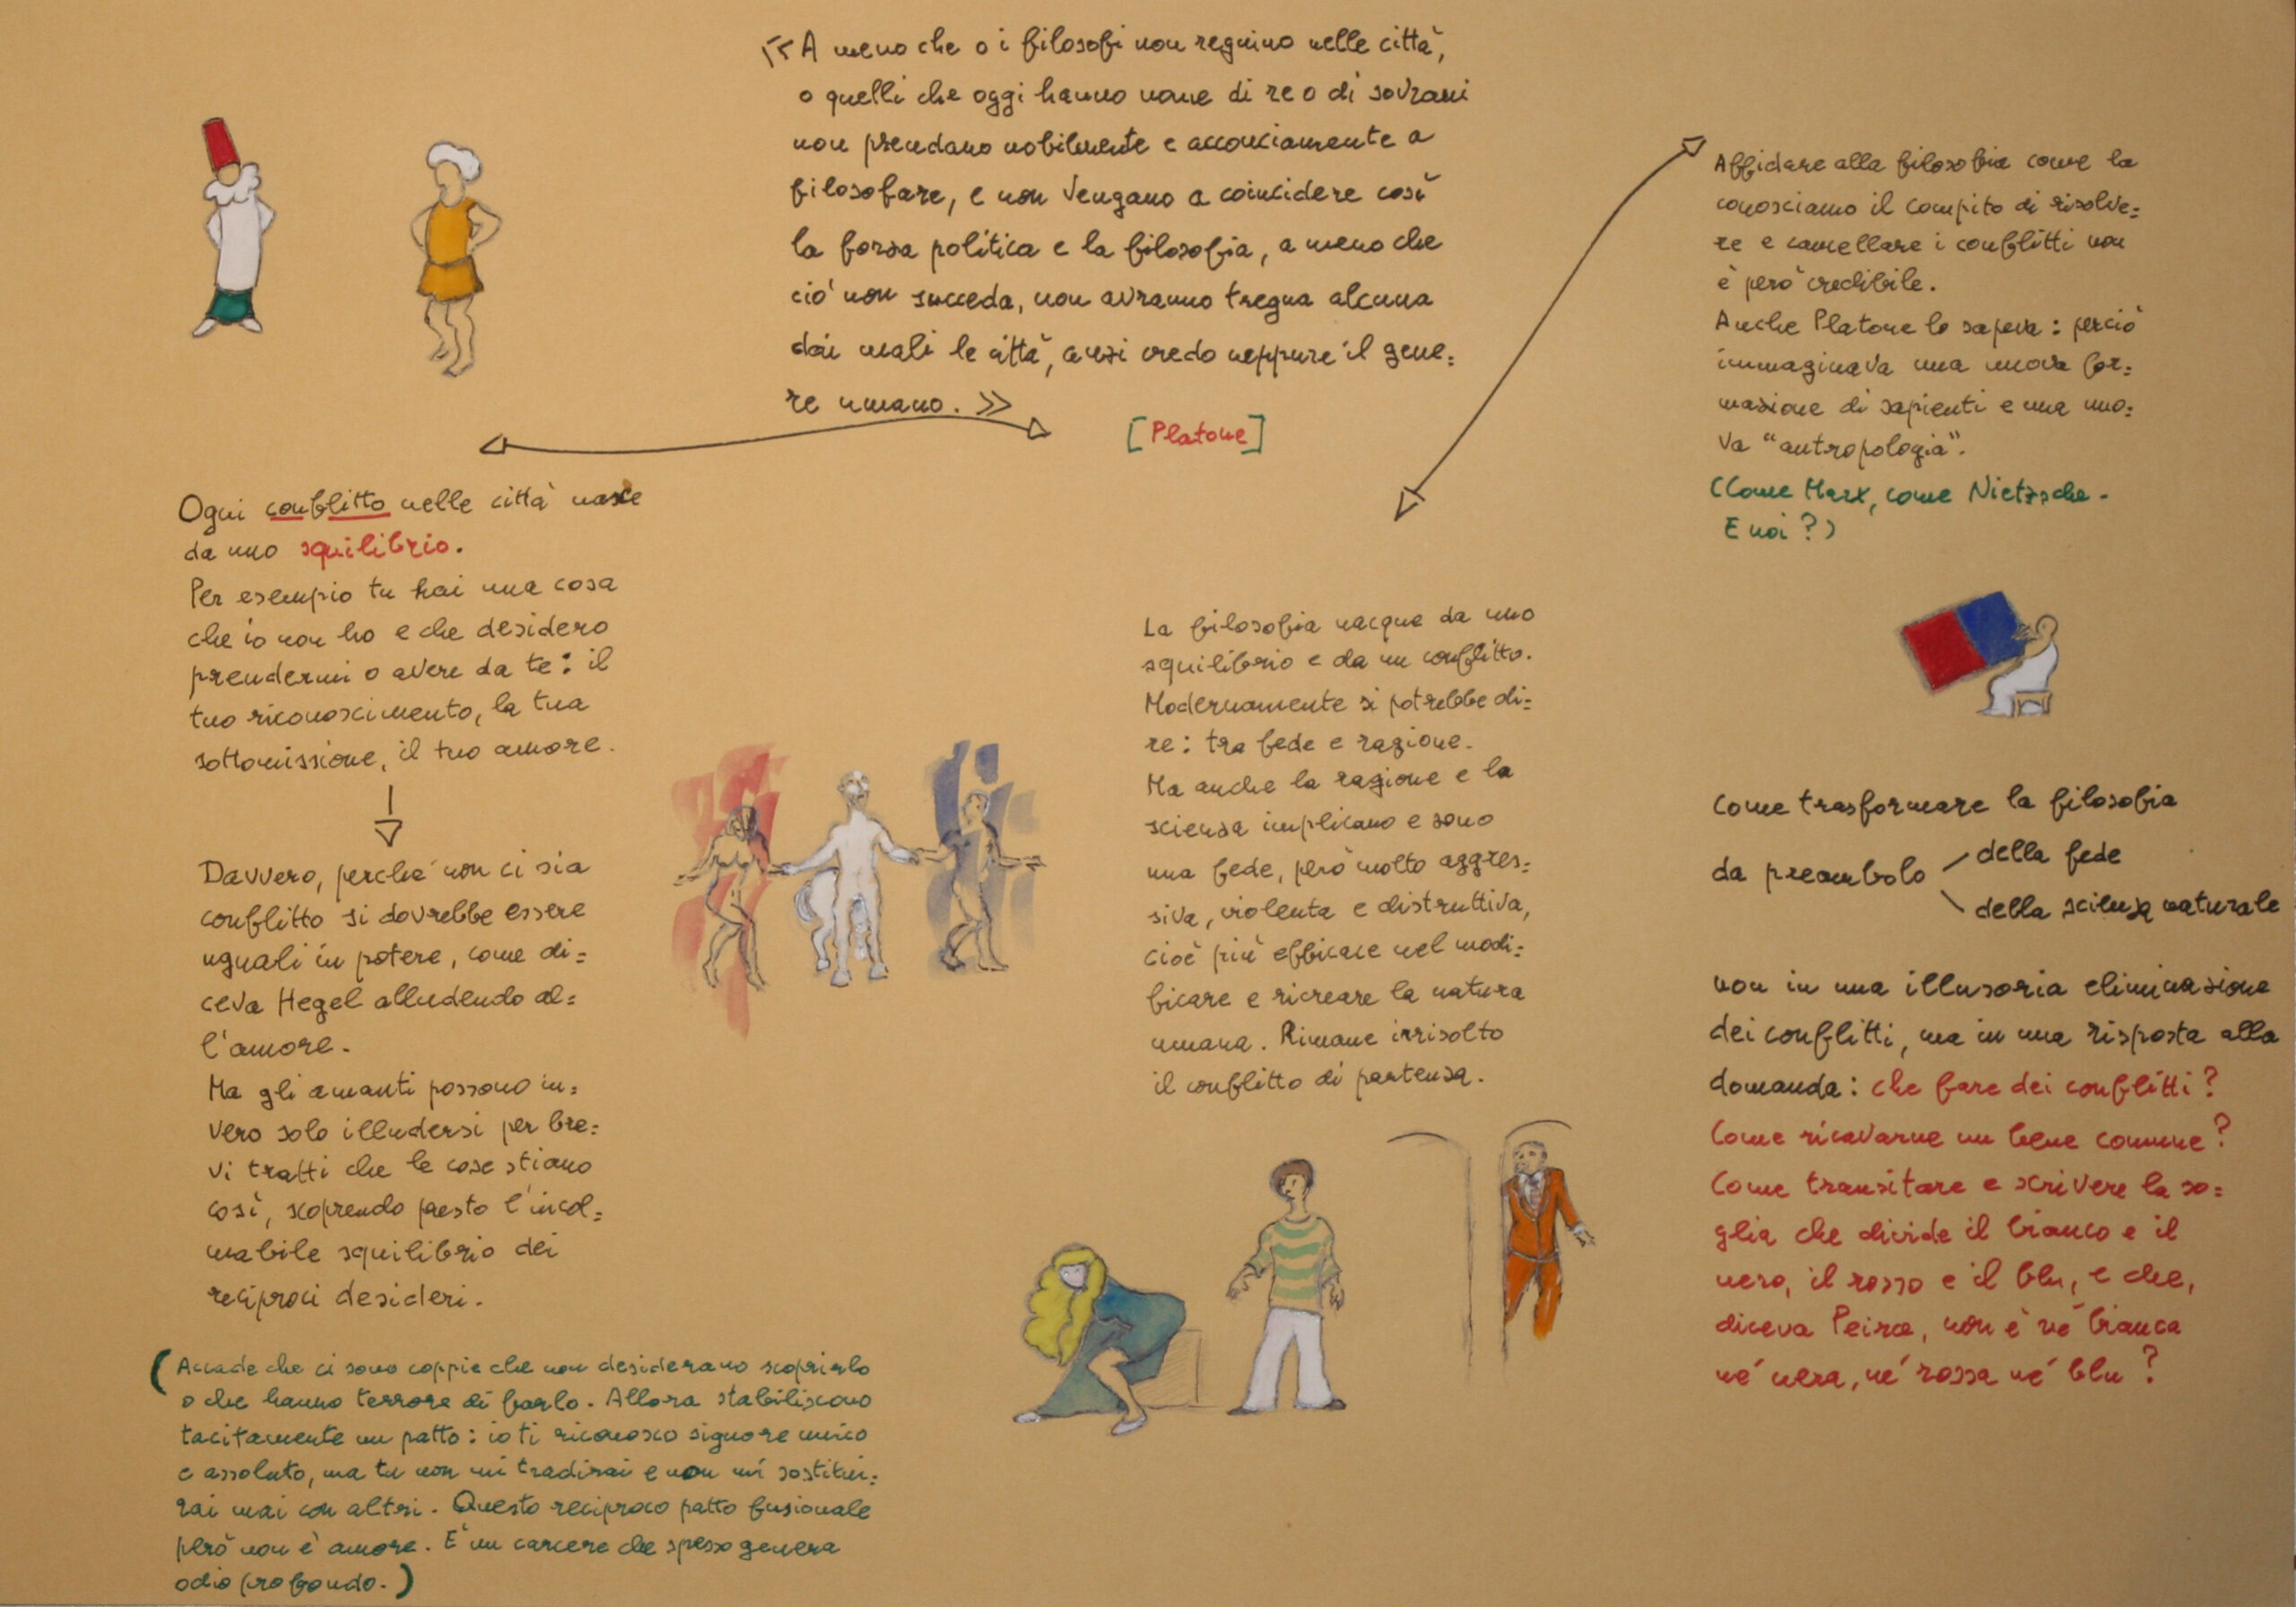 « A meno che o i filosofi non regnino nelle città,
o quelli che oggi hanno nome di re o di sovrani
non prendano nobilmente e acconciamente a
filosofare, e non vengano a coincidere così
la forza politica e la filosofia, a meno che
ciò non succeda, non avranno tregua alcuna
dai mali le città, anzi credo neppure il gene=
re umano. »
[Platone]
Ogni conflitto nelle città nasce
da uno squilibrio.
Per esempio tu hai una cosa
che io non ho e che desidero
prendermi o avere da te: il
tuo riconoscimento, la tua
sottomissione, il tuo amore.
Davvero, perché non ci sia
conflitto si dovrebbe essere
uguali in potere, come di=
ceva Hegel alludendo al=
l'amore.
Ma gli amanti possono in=
vero solo illudersi per bre=
vi tratti che le cose stiano
così, scoprendo presto l'incol=
mabile squilibrio dei
reciproci desideri.
(Accade che ci sono coppie che non desiderano scoprirlo
o che hanno terrore di farlo. Allora stabiliscono
tacitamente un patto: io ti riconosco signore unico
e assoluto, ma tu non mi tradirai e non mi sostitui=
rai mai con altri. Questo reciproco patto fusionale
però non è amore. È un carcere che spesso genera
odio profondo.)
La filosofia nacque da uno
squilibrio e da un conflitto.
Modernamente si potrebbe di=
re: tra fede e ragione.
Ma anche la ragione e la
scienza implicano e sono
una fede, però molto aggres=
siva, violenta e distruttiva,
cioè più efficace nel modi=
ficare e ricreare la natura
umana. Rimane irrisolto
il conflitto di partenza.
Affidare alla filosofia come la
conosciamo il compito di risolve=
re e cancellare i conflitti non
è però credibile.
Anche Platone lo sapeva: perciò
immaginava una nuova for=
mazione di sapienti e una nuo=
va "antropologia".
(Come Marx, come Nietzsche.
E noi?)
come trasformare la filosofia
da preambolo
della fede
della scienza naturale
non in una illusoria eliminazione
dei conflitti, ma in una risposta alla
domanda: che fare dei conflitti?
Come ricavarne un bene comune?
Come transitare e scrivere la so=
glia che divide il bianco e il
nero, il rosso e il blu, e che,
diceva Peirce, non è né bianca
né nera, né rossa né blu?